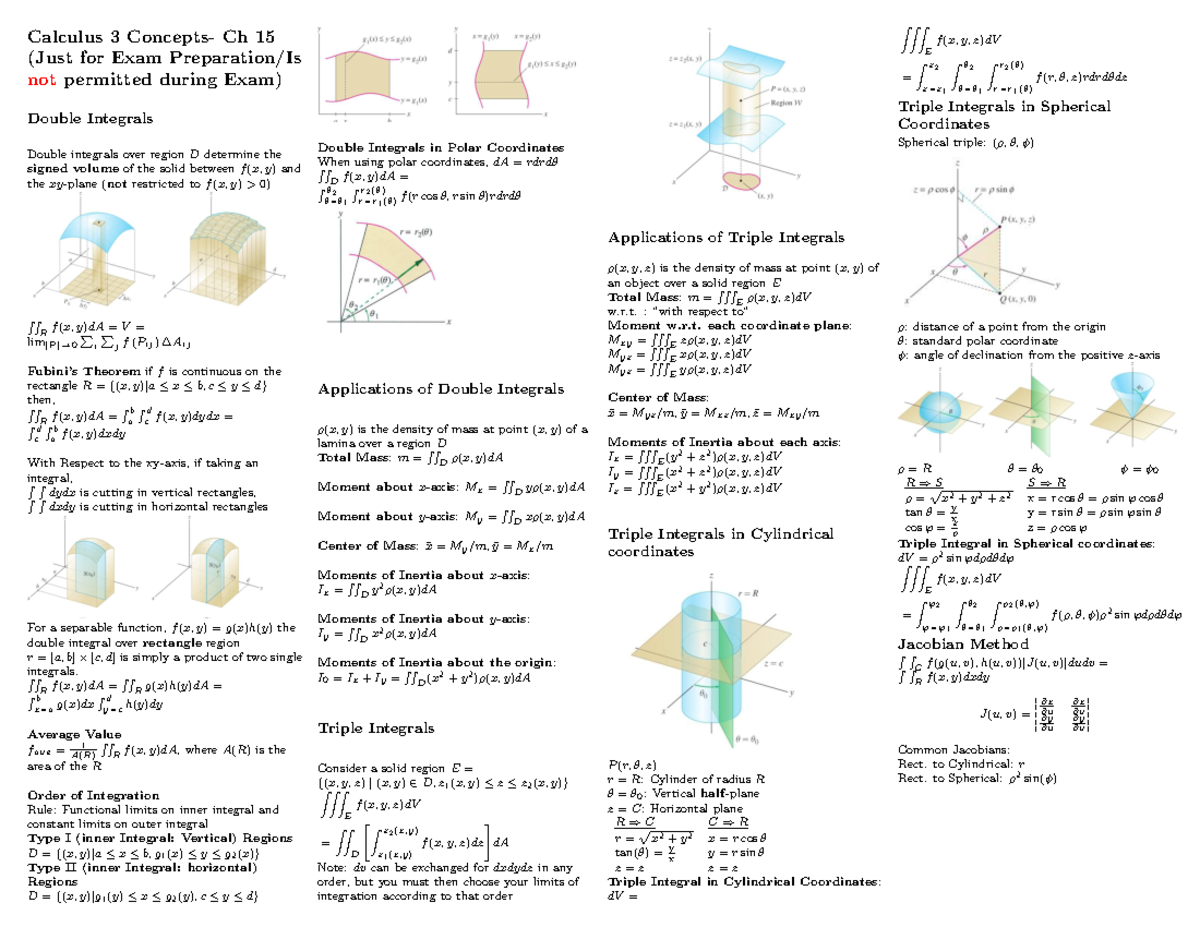 Calculus 3 Concepts- Ch 15
(Just for Exam Preparation/Is
not permitted during Exam)
Double Integrals
Double integrals over region D determine the
signed volume of the solid between f(x, y) and
the xy-plane (not restricted to f(x, y) > 0)
∬_R f(x, y)dA = V =
lim_{|P|→0} ∑_i ∑_j f (P_ij) ΔA_ij
Fubini's Theorem if f is continuous on the
rectangle R = {(x, y)|a ≤ x ≤ b, c ≤ y ≤ d}
then,
∬_R f(x, y)dA = ∫_a^b ∫_c^d f(x, y)dydx =
∫_c^d ∫_a^b f(x, y)dxdy
With Respect to the xy-axis, if taking an
integral,
∫ ∫ dydx is cutting in vertical rectangles,
∫ ∫ dxdy is cutting in horizontal rectangles
For a separable function, f(x, y) = g(x)h(y) the
double integral over rectangle region
r = [a, b] × [c, d] is simply a product of two single
integrals.
∬_R f(x, y)dA = ∬_R g(x)h(y)dA =
∫_{x=a}^b g(x)dx ∫_{y=c}^d h(y)dy
Average Value
f_ave = 1/A(R) ∬_R f(x, y)dA, where A(R) is the
area of the R
Order of Integration
Rule: Functional limits on inner integral and
constant limits on outer integral
Type I (inner Integral: Vertical) Regions
D = {(x, y)|a ≤ x ≤ b, g₁(x) ≤ y ≤ g₂(x)}
Type II (inner Integral: horizontal)
Regions
D = {(x, y)|g₁(y) ≤ x ≤ g₂(y), c ≤ y ≤ d}
y
g₁(x) ≤ y ≤ g₂(x)
y = g₂(x)
y = g₁(x)
x
y
x = g₁(y)
x = g₂(y)
d
g₁(y) ≤ x ≤ g₂(y)
y
c
x
Double Integrals in Polar Coordinates
When using polar coordinates, dA = rdrdθ
∬_D f(x, y)dA =
∫_{θ=θ₁}^{θ₂} ∫_{r=r₁(θ)}^{r₂(θ)} f(r cos θ, r sin θ)rdrdθ
y
r = r₂(θ)
r = r₁(θ)
θ₂
θ₁
x
Applications of Double Integrals
ρ(x, y) is the density of mass at point (x, y) of a
lamina over a region D
Total Mass: m = ∬_D ρ(x, y)dA
Moment about x-axis: M_x = ∬_D yρ(x, y)dA
Moment about y-axis: M_y = ∬_D xρ(x, y)dA
Center of Mass: x̄ = M_y/m, ȳ = M_x/m
Moments of Inertia about x-axis:
I_x = ∬_D y²ρ(x, y)dA
Moments of Inertia about y-axis:
I_y = ∬_D x²ρ(x, y)dA
Moments of Inertia about the origin:
I₀ = I_x + I_y = ∬_D(x² + y²)ρ(x, y)dA
Triple Integrals
Consider a solid region E =
{(x, y, z) | (x, y) ∈ D, z₁(x, y) ≤ z ≤ z₂(x, y)}
∭_E f(x, y, z)dV
= ∬_D [∫_{z₁(x,y)}^{z₂(x,y)} f(x, y, z)dz] dA
Note: dv can be exchanged for dxdydz in any
order, but you must then choose your limits of
integration according to that order
z
z = z₂(x, y)
P = (x, y, z)
Region W
z = z₁(x, y)
x
y
D
(x, y)
Applications of Triple Integrals
ρ(x, y, z) is the density of mass at point (x, y) of
an object over a solid region E
Total Mass: m = ∭_E ρ(x, y, z)dV
w.r.t. : "with respect to"
Moment w.r.t. each coordinate plane:
M_xy = ∭_E zρ(x, y, z)dV
M_yz = ∭_E xρ(x, y, z)dV
M_yz = ∭_E yρ(x, y, z)dV
Center of Mass:
x̄ = M_yz/m, ȳ = M_xz/m, z̄ = M_xy/m
Moments of Inertia about each axis:
I_x = ∭_E(y² + z²)ρ(x, y, z)dV
I_y = ∭_E(x² + z²)ρ(x, y, z)dV
I_z = ∭_E(x² + y²)ρ(x, y, z)dV
Triple Integrals in Cylindrical
coordinates
z
r = R
c
z = c
θ₀
x
y
θ = θ₀
P(r, θ, z)
r = R: Cylinder of radius R
θ = θ₀: Vertical half-plane
z = C: Horizontal plane
R ⇒ C C ⇒ R
r = √(x² + y²) x = r cos θ
tan(θ) = y/x y = r sin θ
z = z z = z
Triple Integral in Cylindrical Coordinates:
dV =
∭_E f(x, y, z)dV
= ∫_{z=z₁}^{z₂} ∫_{θ=θ₁}^{θ₂} ∫_{r=r₁(θ)}^{r₂(θ)} f(r, θ, z)rdrdθdz
Triple Integrals in Spherical
Coordinates
Spherical triple: (ρ, θ, φ)
z
z = ρ cos φ
r = ρ sin φ
P(x, y, z)
ρ
φ
θ
r
x
y
x
y
Q(x, y, 0)
ρ: distance of a point from the origin
θ: standard polar coordinate
φ: angle of declination from the positive z-axis
ρ = R θ = θ₀ φ = φ₀
R ⇒ S S ⇒ R
ρ = √(x² + y² + z²) x = r cos θ = ρ sin φ cos θ
tan θ = y/x y = r sin θ = ρ sin φ sin θ
cos φ = z/ρ z = ρ cos φ
Triple Integral in Spherical coordinates:
dV = ρ² sin φdρdθdφ
∭_E f(x, y, z)dV
= ∫_{φ=φ₁}^{φ₂} ∫_{θ=θ₁}^{θ₂} ∫_{ρ=ρ₁(θ,φ)}^{ρ₂(θ,φ)} f(ρ, θ, φ)ρ² sin φdρdθdφ
Jacobian Method
∫ ∫_G f(g(u, v), h(u, v))|J(u, v)|dudv =
∫ ∫_R f(x, y)dxdy
J(u, v) = |∂x/∂u ∂x/∂v|
|∂y/∂u ∂y/∂v|
Common Jacobians:
Rect. to Cylindrical: r
Rect. to Spherical: ρ² sin(φ)